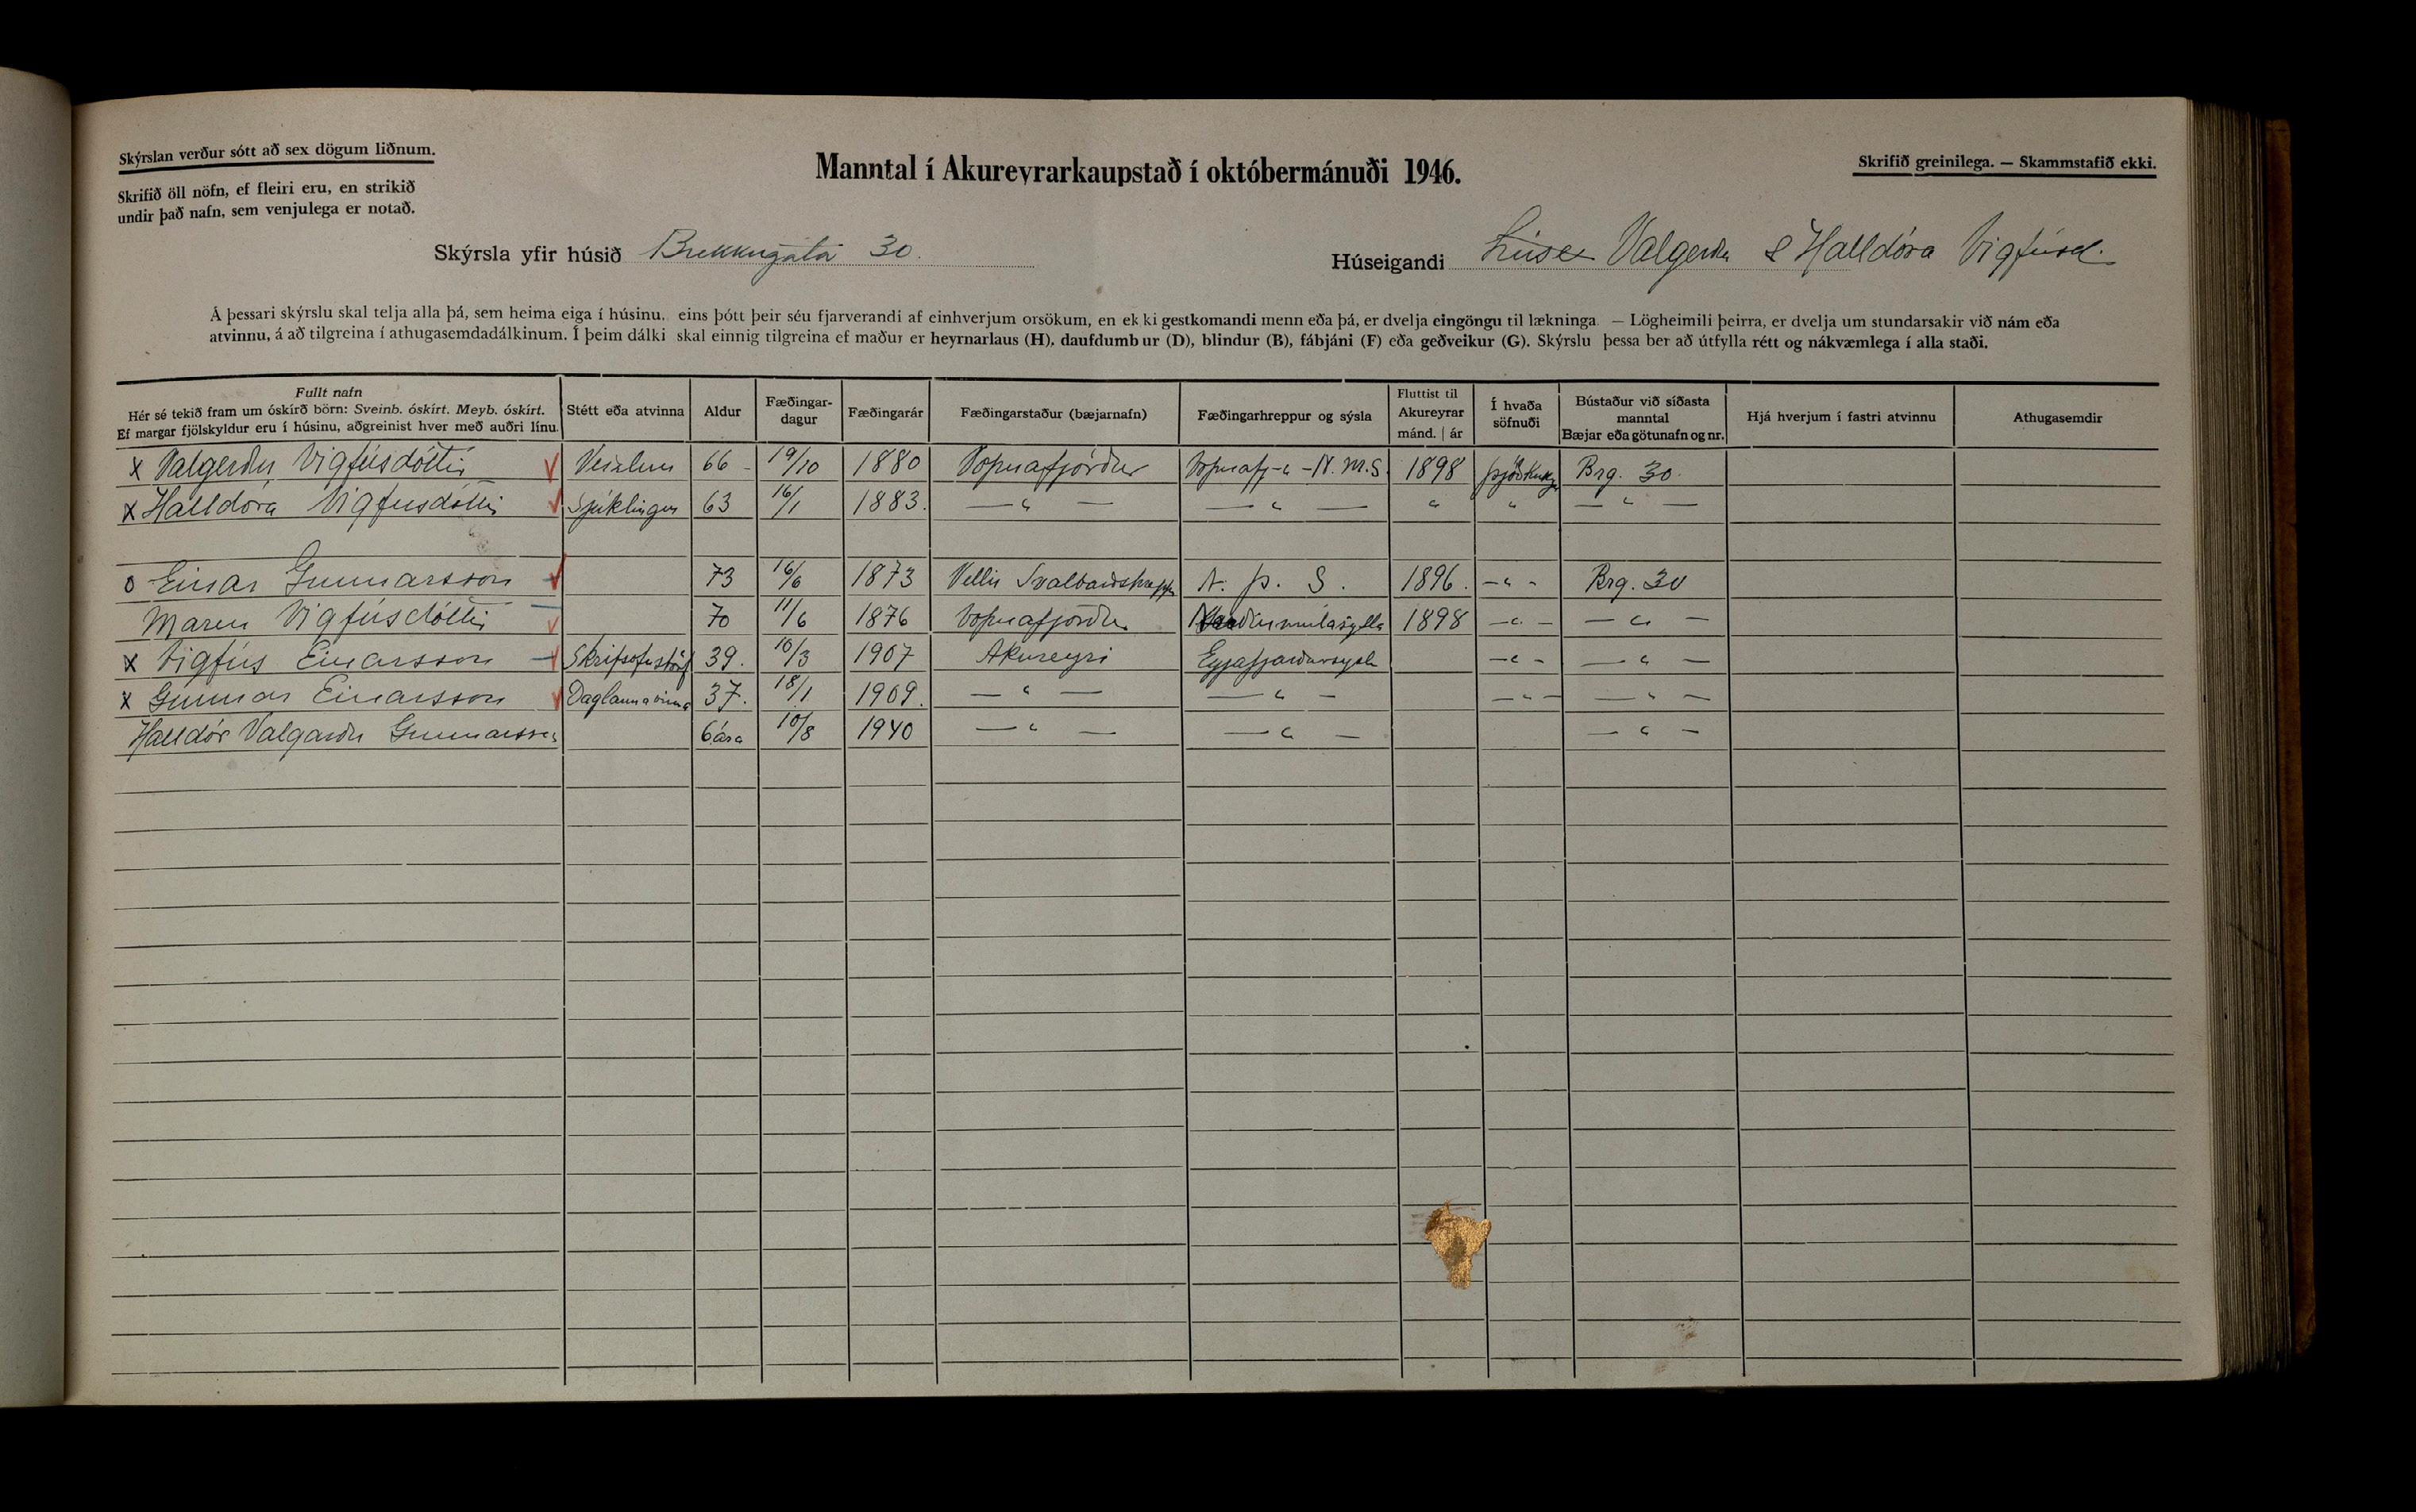 Skýrslan verður sótt að sex dögum liðnum.
Skrifið öll nöfn, ef fleiri eru, en strikið
undir það nafn, sem venjulega er notað.
Manntal í Akureyrarkaupstað í októbermánuði 1946.
Skrifið greinilega. — Skammstafið ekki.
Skýrsla yfir húsið Brekkugata 30.
Húseigandi Valgerður & Halldóra Vigfúsd.
Á þessari skýrslu skal telja alla þá, sem heima eiga í húsinu, eins þótt þeir séu fjarverandi af einhverjum orsökum, en ekki gestkomandi menn eða þá, er dvelja eingöngu til lækninga. — Lögheimili þeirra, er dvelja um stundarsakir við nám eða
atvinnu, á að tilgreina í athugasemdadálkinum. Í þeim dálki skal einnig tilgreina ef maður er heyrnarlaus (H), daufdumbur (D), blindur (B), fábjáni (F) eða geðveikur (G). Skýrslu þessa ber að útfylla rétt og nákvæmlega í alla staði.
Fullt nafn
Hér sé tekið fram um óskírð börn: Sveinb. óskírt. Meyb. óskírt.
Ef margar fjölskyldur eru í húsinu, aðgreinist hver með auðri línu.
Stétt eða atvinna
Aldur
Fæðingar-
dagur
Fæðingarár
Fæðingarstaður (bæjarnafn)
Fæðingarhreppur og sýsla
Fluttist til
Akureyrar
mánd. | ár
Í hvaða
söfnuði
Bústaður við síðasta
manntal
Bæjar eða götunafn og nr.
Hjá hverjum í fastri atvinnu
Athugasemdir
x Valgerður Vigfúsdóttir Verzlun 66 19/10 1880 Vopnafjörður Vopnafj. N. M.S. 1898 Brg. 30.
x Halldóra Vigfúsdóttir Sjúklingur 63 16/1 1883. — " — — " — " " — " —
o Einar Gunnarsson 73 16/6 1873 Vellir Svalbarðshrepp N. Þ. S. 1896. — " - Brg. 30
Maren Vigfúsdóttir 70 11/6 1876 Vopnafjörður Norðurmúlasýslu 1898 — " — — " —
x Vigfús Einarsson Skrifstofustörf 39. 10/3 1907 Akureyri Eyjafjarðarsýsla — " - — " —
x Gunnar Einarsson Daglaunavinna 37. 18/1 1909. — " — — " — — " — — " —
Halldór Valgarður Gunnarsson 6 ára 10/8 1940 — " — — " — — " —